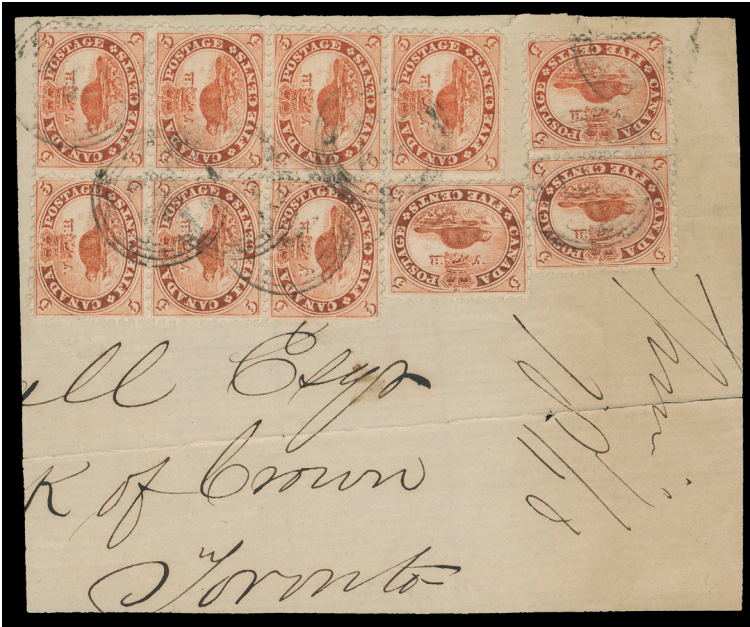 5 5 5 5 5 5 5 5
CANADA POSTAGE FIVE CENTS V R
CANADA POSTAGE FIVE CENTS V R
CANADA POSTAGE FIVE CENTS V R
CANADA POSTAGE FIVE CENTS V R
CANADA POSTAGE FIVE CENTS V R
CANADA POSTAGE FIVE CENTS V R
CANADA POSTAGE FIVE CENTS V R
CANADA POSTAGE FIVE CENTS V R
CANADA POSTAGE FIVE CENTS V R
CANADA POSTAGE FIVE CENTS V R
all Esqr
k of Crown
Toronto